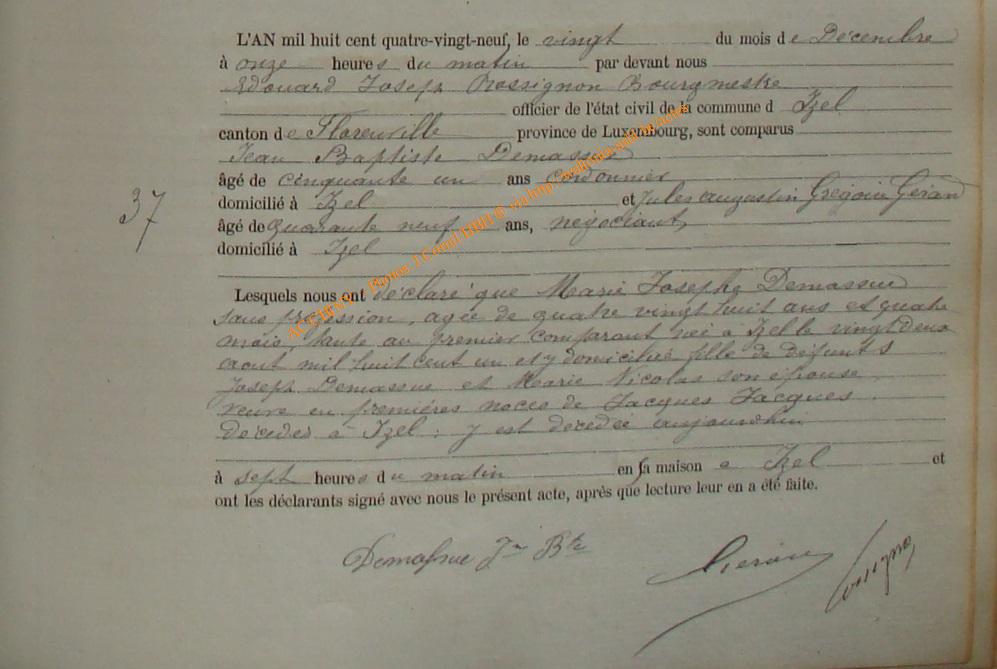 L'AN mil huit cent quatre-vingt-neuf, le vingt du mois de Décembre
à onze heures du matin par devant nous
Edouard Joseph Rossignon Bourgmestre
officier de l'état civil de la commune d Izel
canton de Florenville province de Luxembourg, sont comparus
Jean Baptiste Demassue
âgé de cinquante un ans cordonnier
domicilié à Izel et Jules Augustin Grégoire Gérard
37
âgé de quarante neuf ans, négociant,
domicilié à Izel
Lesquels nous ont déclaré que Marie Josephe Demassue
sans profession, agée de quatre vingt huit ans et quatre
mois, tante au premier comparant née à Izel le vingt deux
aout mil huit cent un et y domiciliée fille de défunts
Joseph Demassue et Marie Nicolas son épouse,
veuve en premières noces de Jacques Jacques
décédés à Izel ; y est décédée aujourd'hui
à sept heures du matin en sa maison à Izel et
ont les déclarants signé avec nous le présent acte, après que lecture leur en a été faite.
Demassue Jn Bte